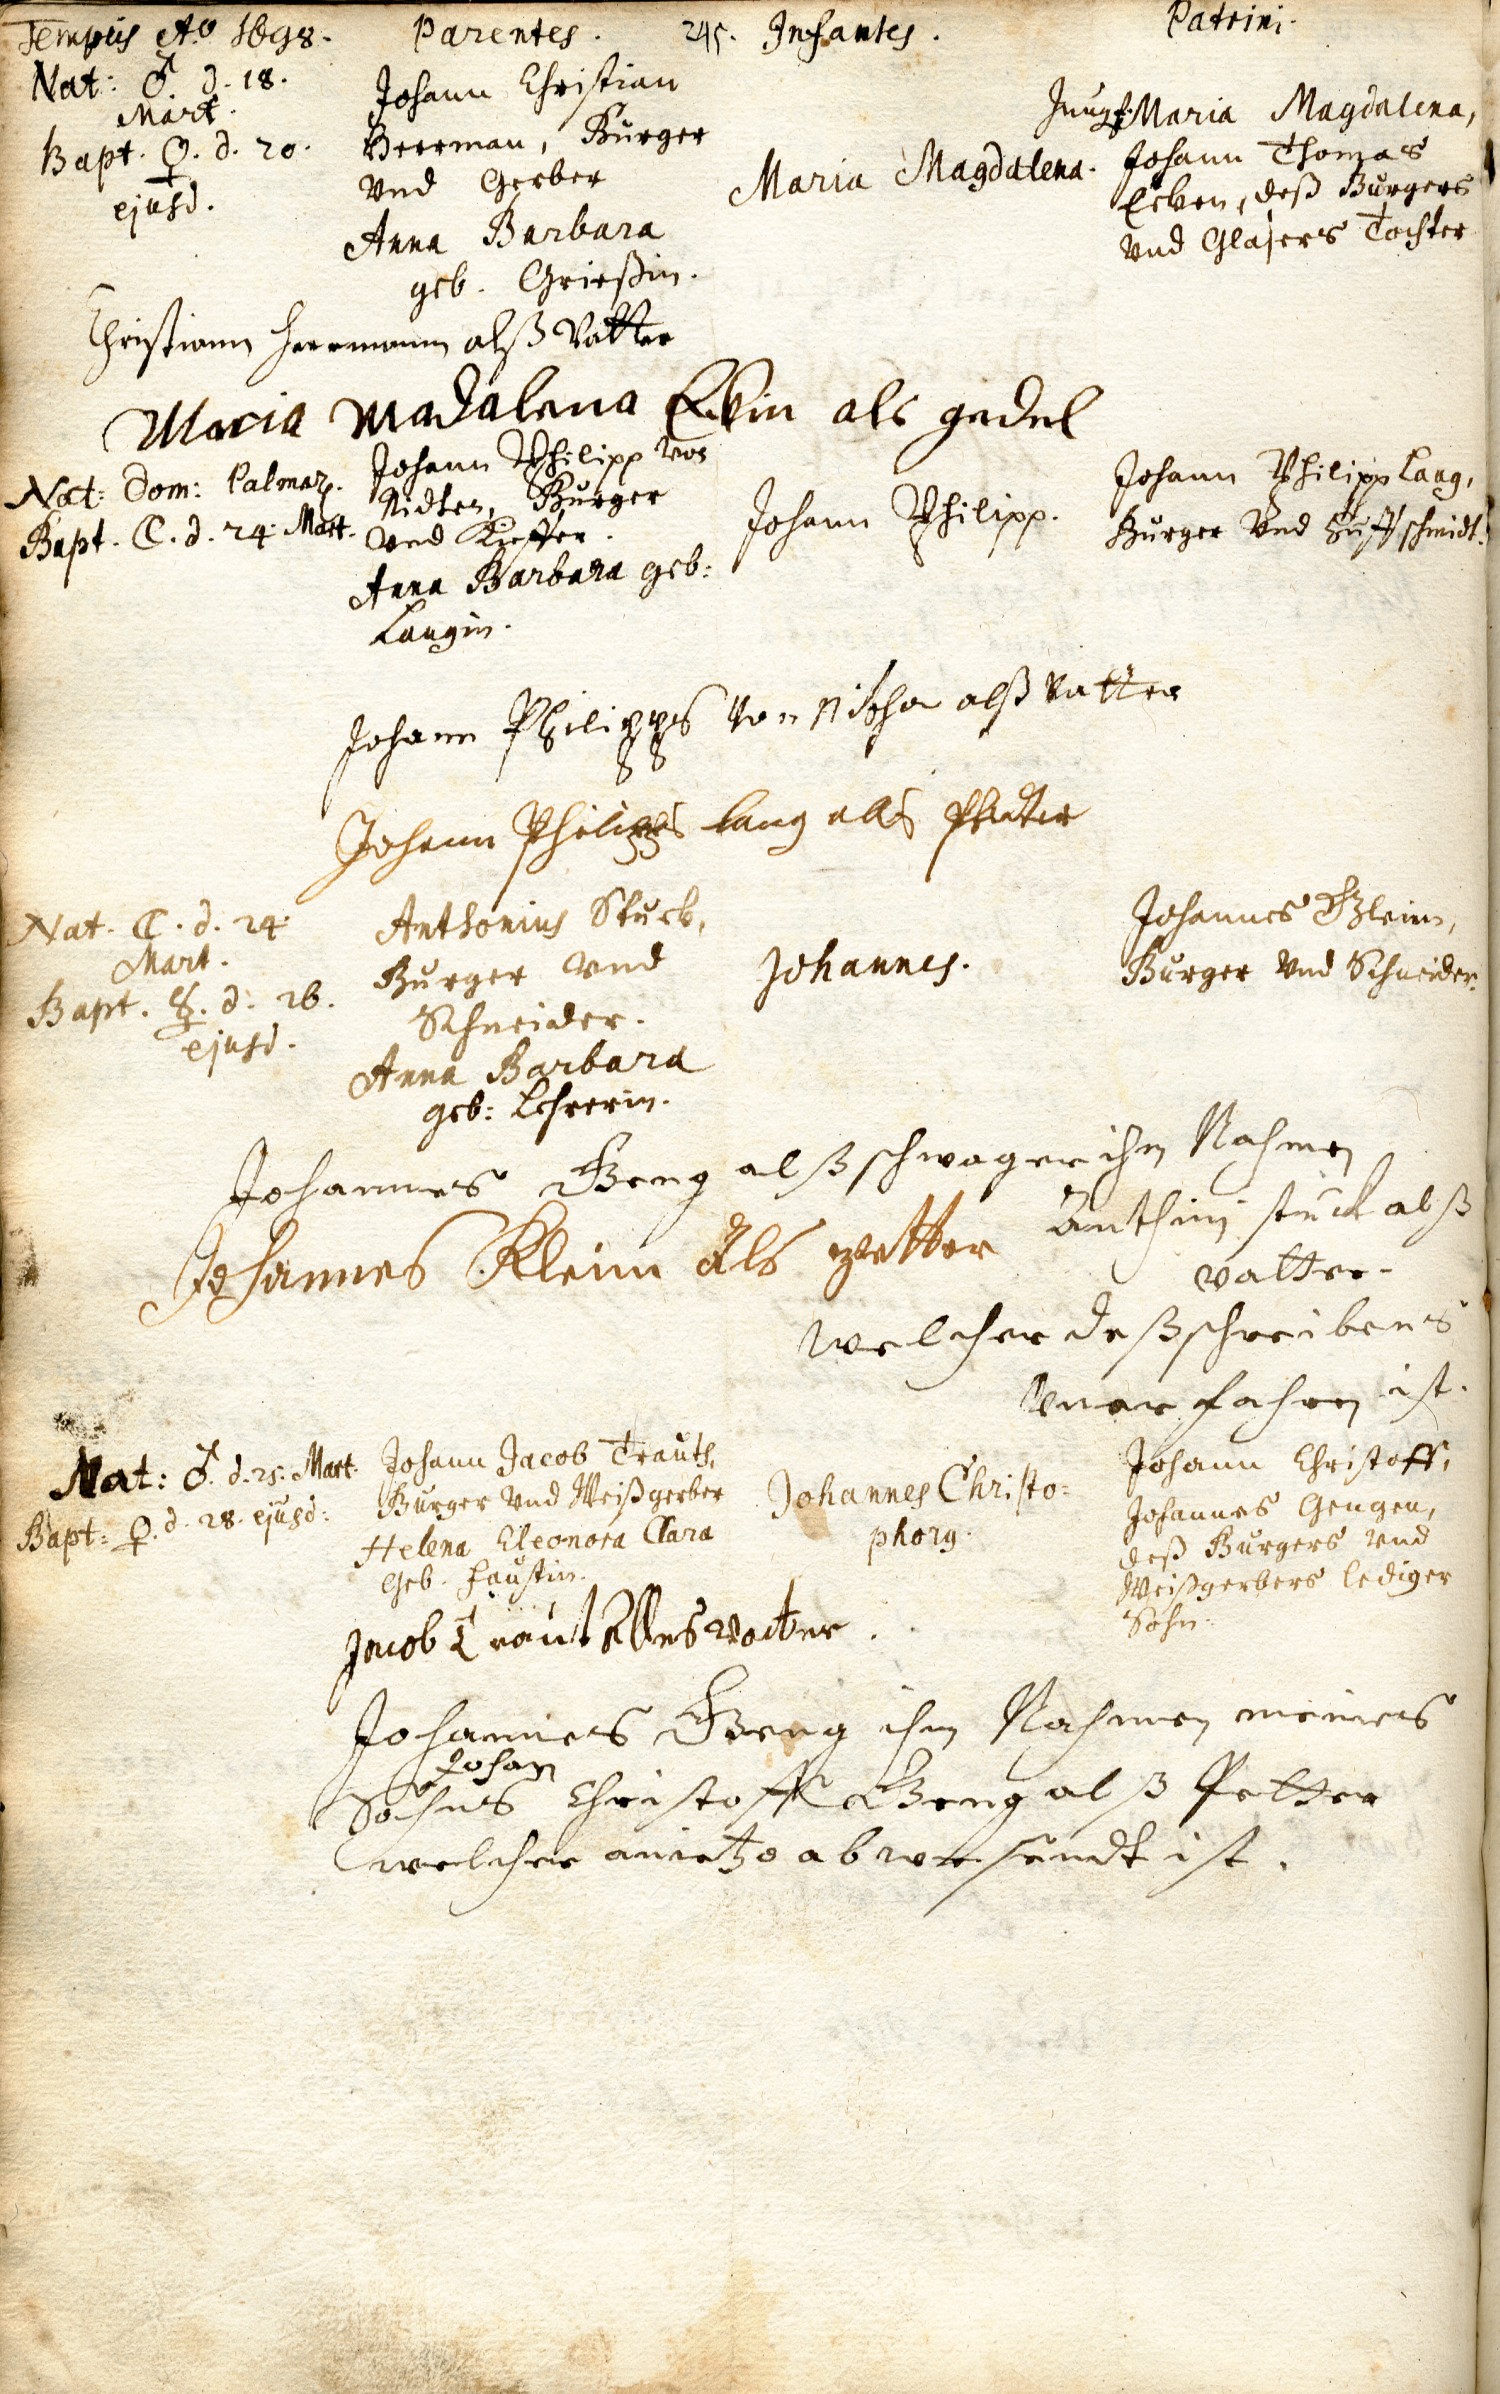 Tempus Aō 1698. Parentes. 245. Infantes. Patrini.
Nat: ♂. d. 18.
Mart.
Bapt. ♀. d. 20.
ejusd.
Johann Christian
Herrman, Burger
Vnd Gerber
Anna Barbara
geb. Grießin.
Maria Magdalena.
Jungf. Maria Magdalena,
Johann Thomas
deß Burgers
Vnd Glasers Tochter
Christiann Herrmann alß Vatter
Maria Madalena als gedel
Nat: Dom: Palmar.
Bapt. ☾. d. 24. Mart.
Johann Philipp Von
Nidten, Burger
Vnd Kieffer.
Anna Barbara geb:
Langin.
Johann Philipp.
Johann Philipp Lang,
Burger Vnd Huffschmidt.
Johann Philipps Von alß Vatter
Johann Philipps Lang als
Nat. ☾. d. 24.
Mart.
Bapt. ☿. d. 26.
ejusd.
Anthonius Stuck,
Burger Vnd
Schneider.
Anna Barbara
geb: Lehrerin.
Johannes.
Johannes Klein,
Burger Vnd Schneider.
Johannes Geng alß schwager ihm Nahmen
Anthoni stuck alß
vatter.
Johannes Klein als petter
welcher deß schreibens
Vnerfahren ist.
Nat: ♂. d. 25. Mart.
Bapt: ♀. d. 28. ejusd:
Johann Jacob Trauth,
Burger Vnd Weißgerber
Helena Eleonora Clara
Geb. Faustin.
Johannes Christo-
phorg.
Johann Christoff,
Johannes Gengen,
deß Burgers Vnd
Weißgerbers lediger
Sohn.
Jacob Traut alles Vatter.
Johannes Geng ihm Nahmen meines
Johan
Sohns Christoff Geng alß Petter
welcher anietzo abwesendt ist.